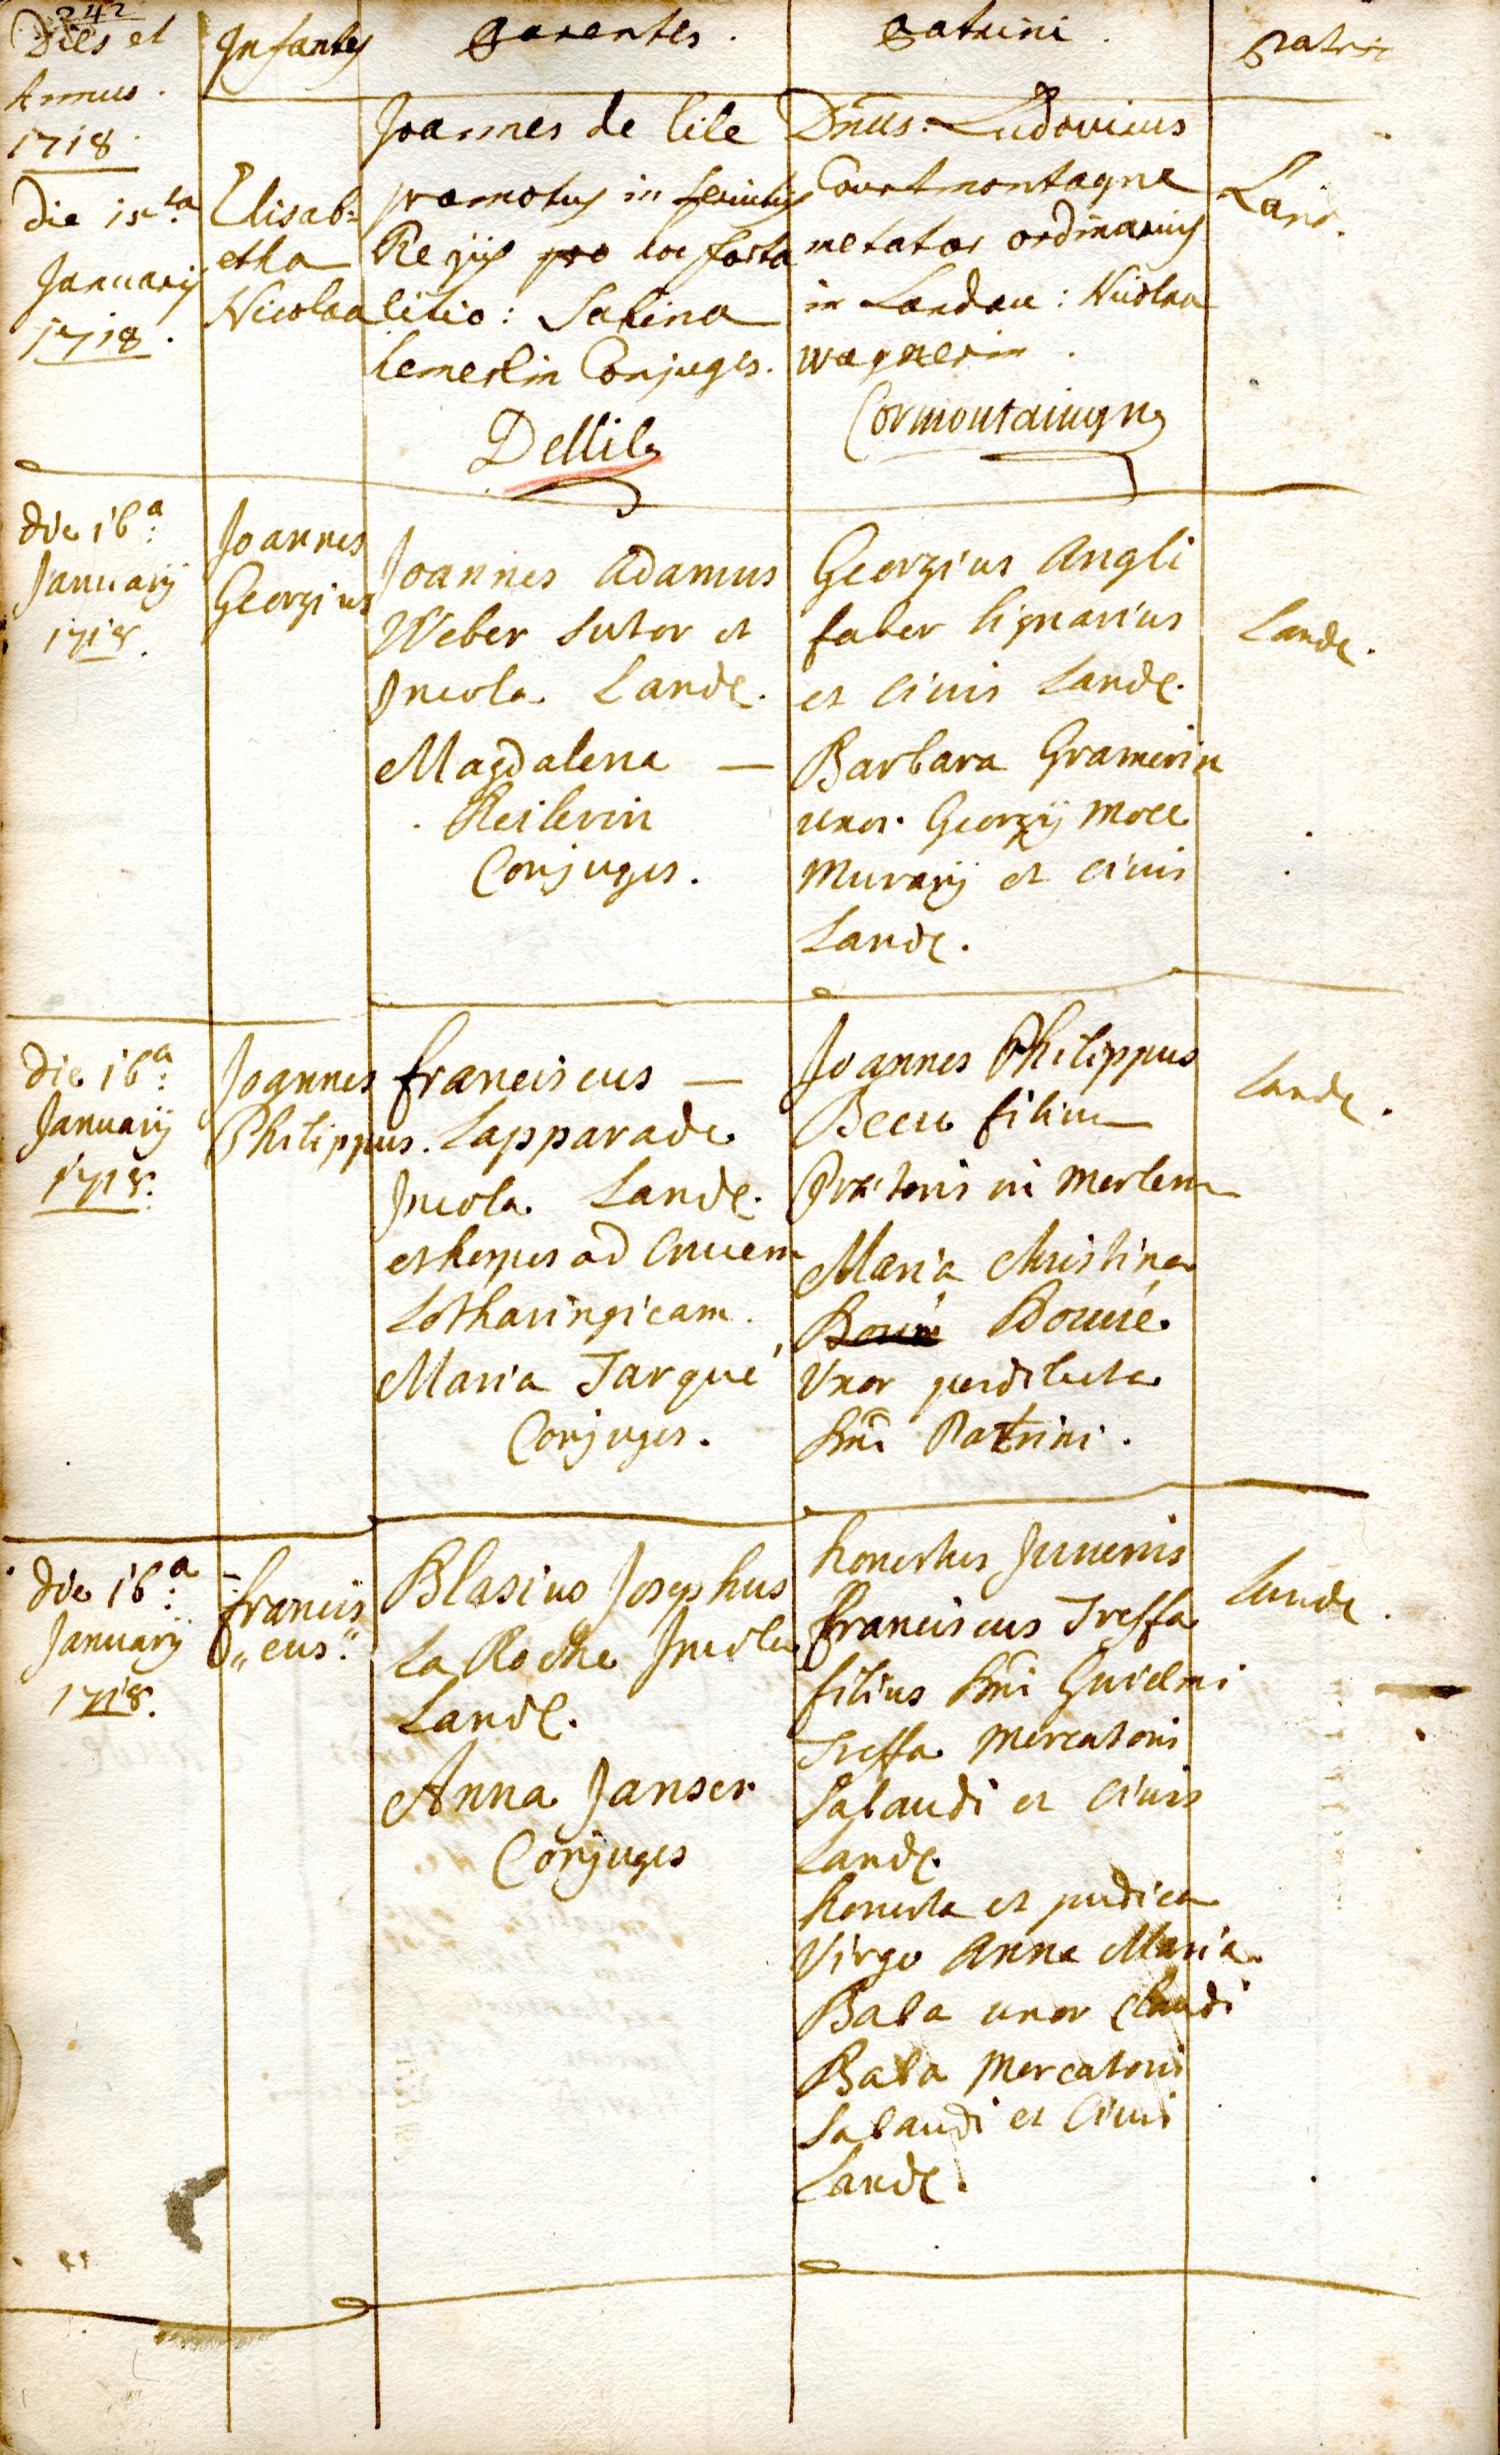 242
Dies et
Annus.
1718.
Infantes
Parentes.
Patrini.
Patria
die 15ta
Januarij
1718.
Elisab=
etha
Nicolaa
Joannes de lile
promotus in
Regijs pro hoc forta
litio: Sabina
Conjuges.
Dellile
Dnus. Ludovicus
Courtmontagne
metator ordinarius
in Landau: Nicolaa
wagnerin.
Cormontaingne
Land.
die 16a:
Januarij
1718.
Joannes
Georgius
Joannes Adamus
Weber sutor et
Jncola Landę.
Magdalena —
Reilerin
Conjuges.
Georgius Angli
faber lignarius
et civis Landę.
Barbara Gramerin
uxor Georgij Moll
Murarij et civis
Landę.
Landę.
die 16a:
Januarij
1718.
Joannes
Philippus.
franciscus —
Lapparade
Jncola Landę.
et hospes ad Crucem
Lotharingicam.
Maria Jarqué
Conjuges.
Joannes Philippus
Becu filius
Prætoris in
Maria Christina
Bouié.
Uxor perdilecta
Patrini.
Landę.
die 16a:
Januarij
1718.
francis
"cus."
Blasius Josephus
La Roche Jncola
Landę.
Anna Janser
Conjuges
honestus Juvenis
franciscus Treffa
filius Guielmi
Treffa Mercatoris
Sabaudi et Civis
Landę.
honesta et pudica
Virgo Anna Maria
Bala uxor Claudi
Bala Mercatoris
Sabaudi et Civis
Landę.
Landę.